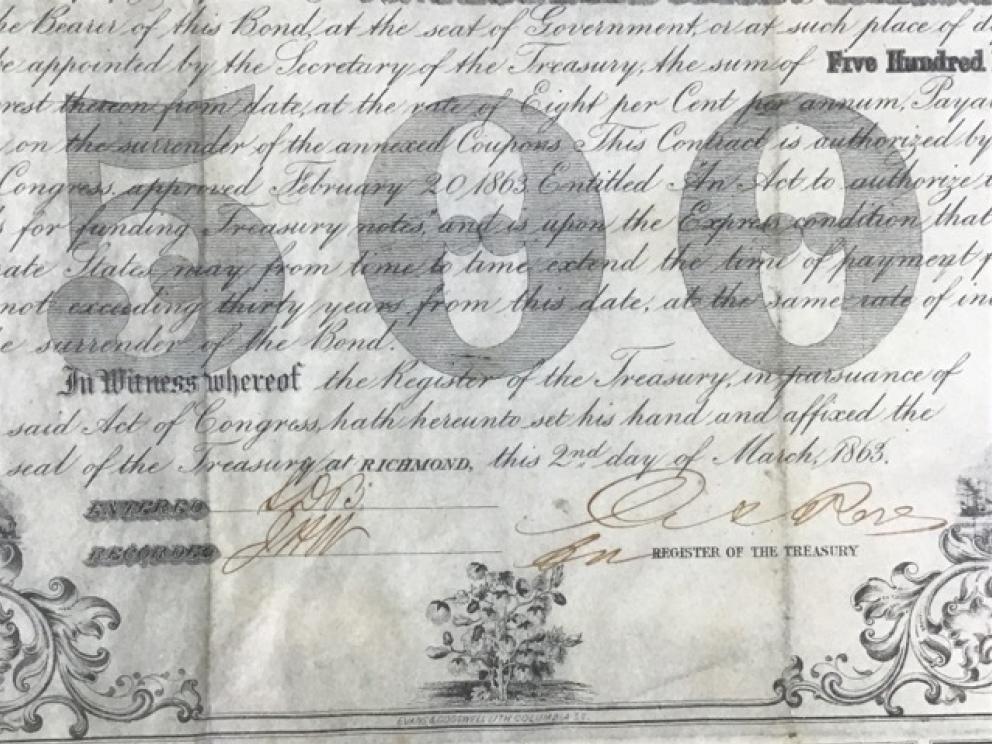 he Bearer of this Bond, at the seat of Government, or at such place of d
be appointed by the Secretary of the Treasury, the sum of Five Hundred
rest thereon from date, at the rate of Eight per Cent per annum, Paya
on the surrender of the annexed Coupons. This Contract is authorized by
Congress, approved February 20 1863, Entitled "An Act to authorize t
s for funding Treasury notes", and is upon the Express condition that
rate States may from time to time extend the time of payment f
not exceeding thirty years from this date, at the same rate of in
e surrender of the Bond.
500
In Witness whereof the Register of the Treasury, in pursuance of
said Act of Congress, hath hereunto set his hand and affixed the
seal of the Treasury, at RICHMOND, this 2nd day of March, 1863.
ENTERED
RECORDED
REGISTER OF THE TREASURY
EVANS & COGSWELL LITH. COLUMBIA S.C.